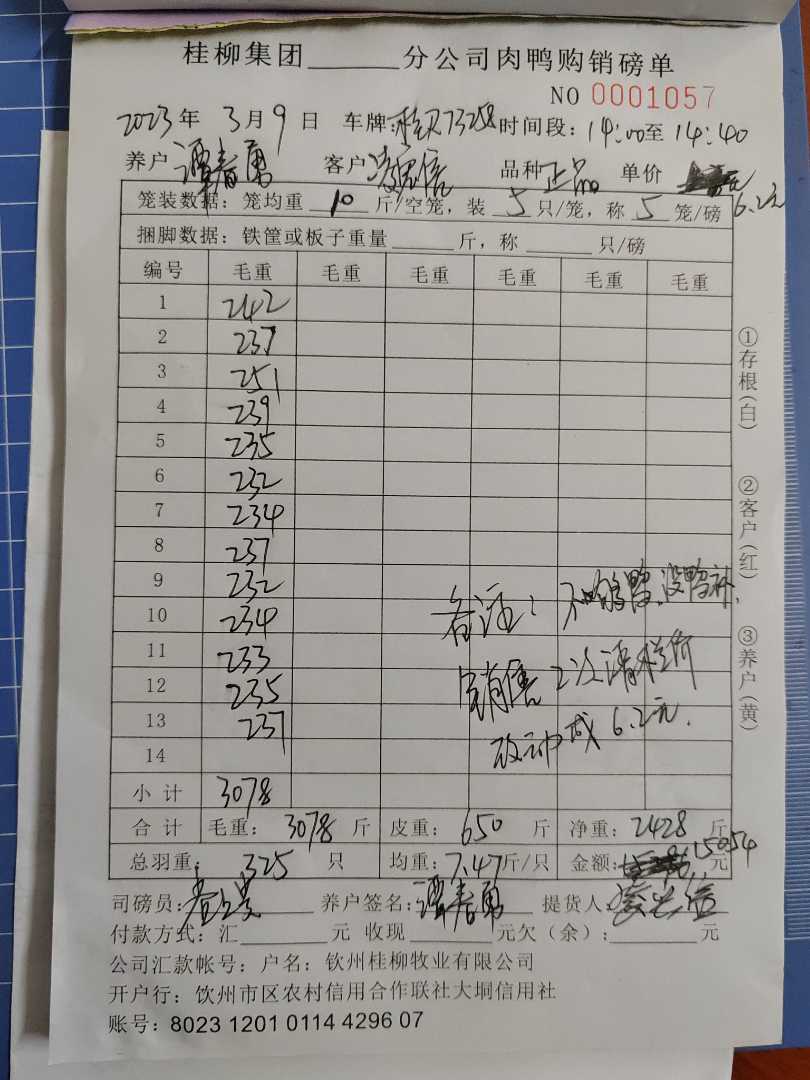 桂柳集团______分公司肉鸭购销磅单
NO 0001057
2023年 3月9日 车牌: 73258 时间段: 14:00至 14:40
养户 谭春勇 客户 凌忠信 品种 正品 单价
6.2元
笼装数据: 笼均重 10 斤/空笼, 装 5 只/笼, 称 5 笼/磅
捆脚数据: 铁筐或板子重量______斤, 称______只/磅
编号 毛重 毛重 毛重 毛重 毛重 毛重
1 242
2 237
3 251
4 239
5 235
6 232
7 234
8 237
9 232
10 234
11 233
12 235
13 237
14
小计 3078
备注: 不够鸭, 没鸭补,
销售2次清栏价
改动成 6.2元.
合计 毛重: 3078 斤 皮重: 650 斤 净重: 2428 斤
总羽重: 325 只 均重: 7.47斤/只 金额: 15054 元
司磅员: 养户签名: 谭春勇 提货人:
付款方式: 汇______元 收现______元欠(余):______元
公司汇款帐号: 户名: 钦州桂柳牧业有限公司
开户行: 饮州市区农村信用合作联社大垌信用社
账号: 8023 1201 0114 4296 07
①存根(白)
②客户(红)
③养户(黄)